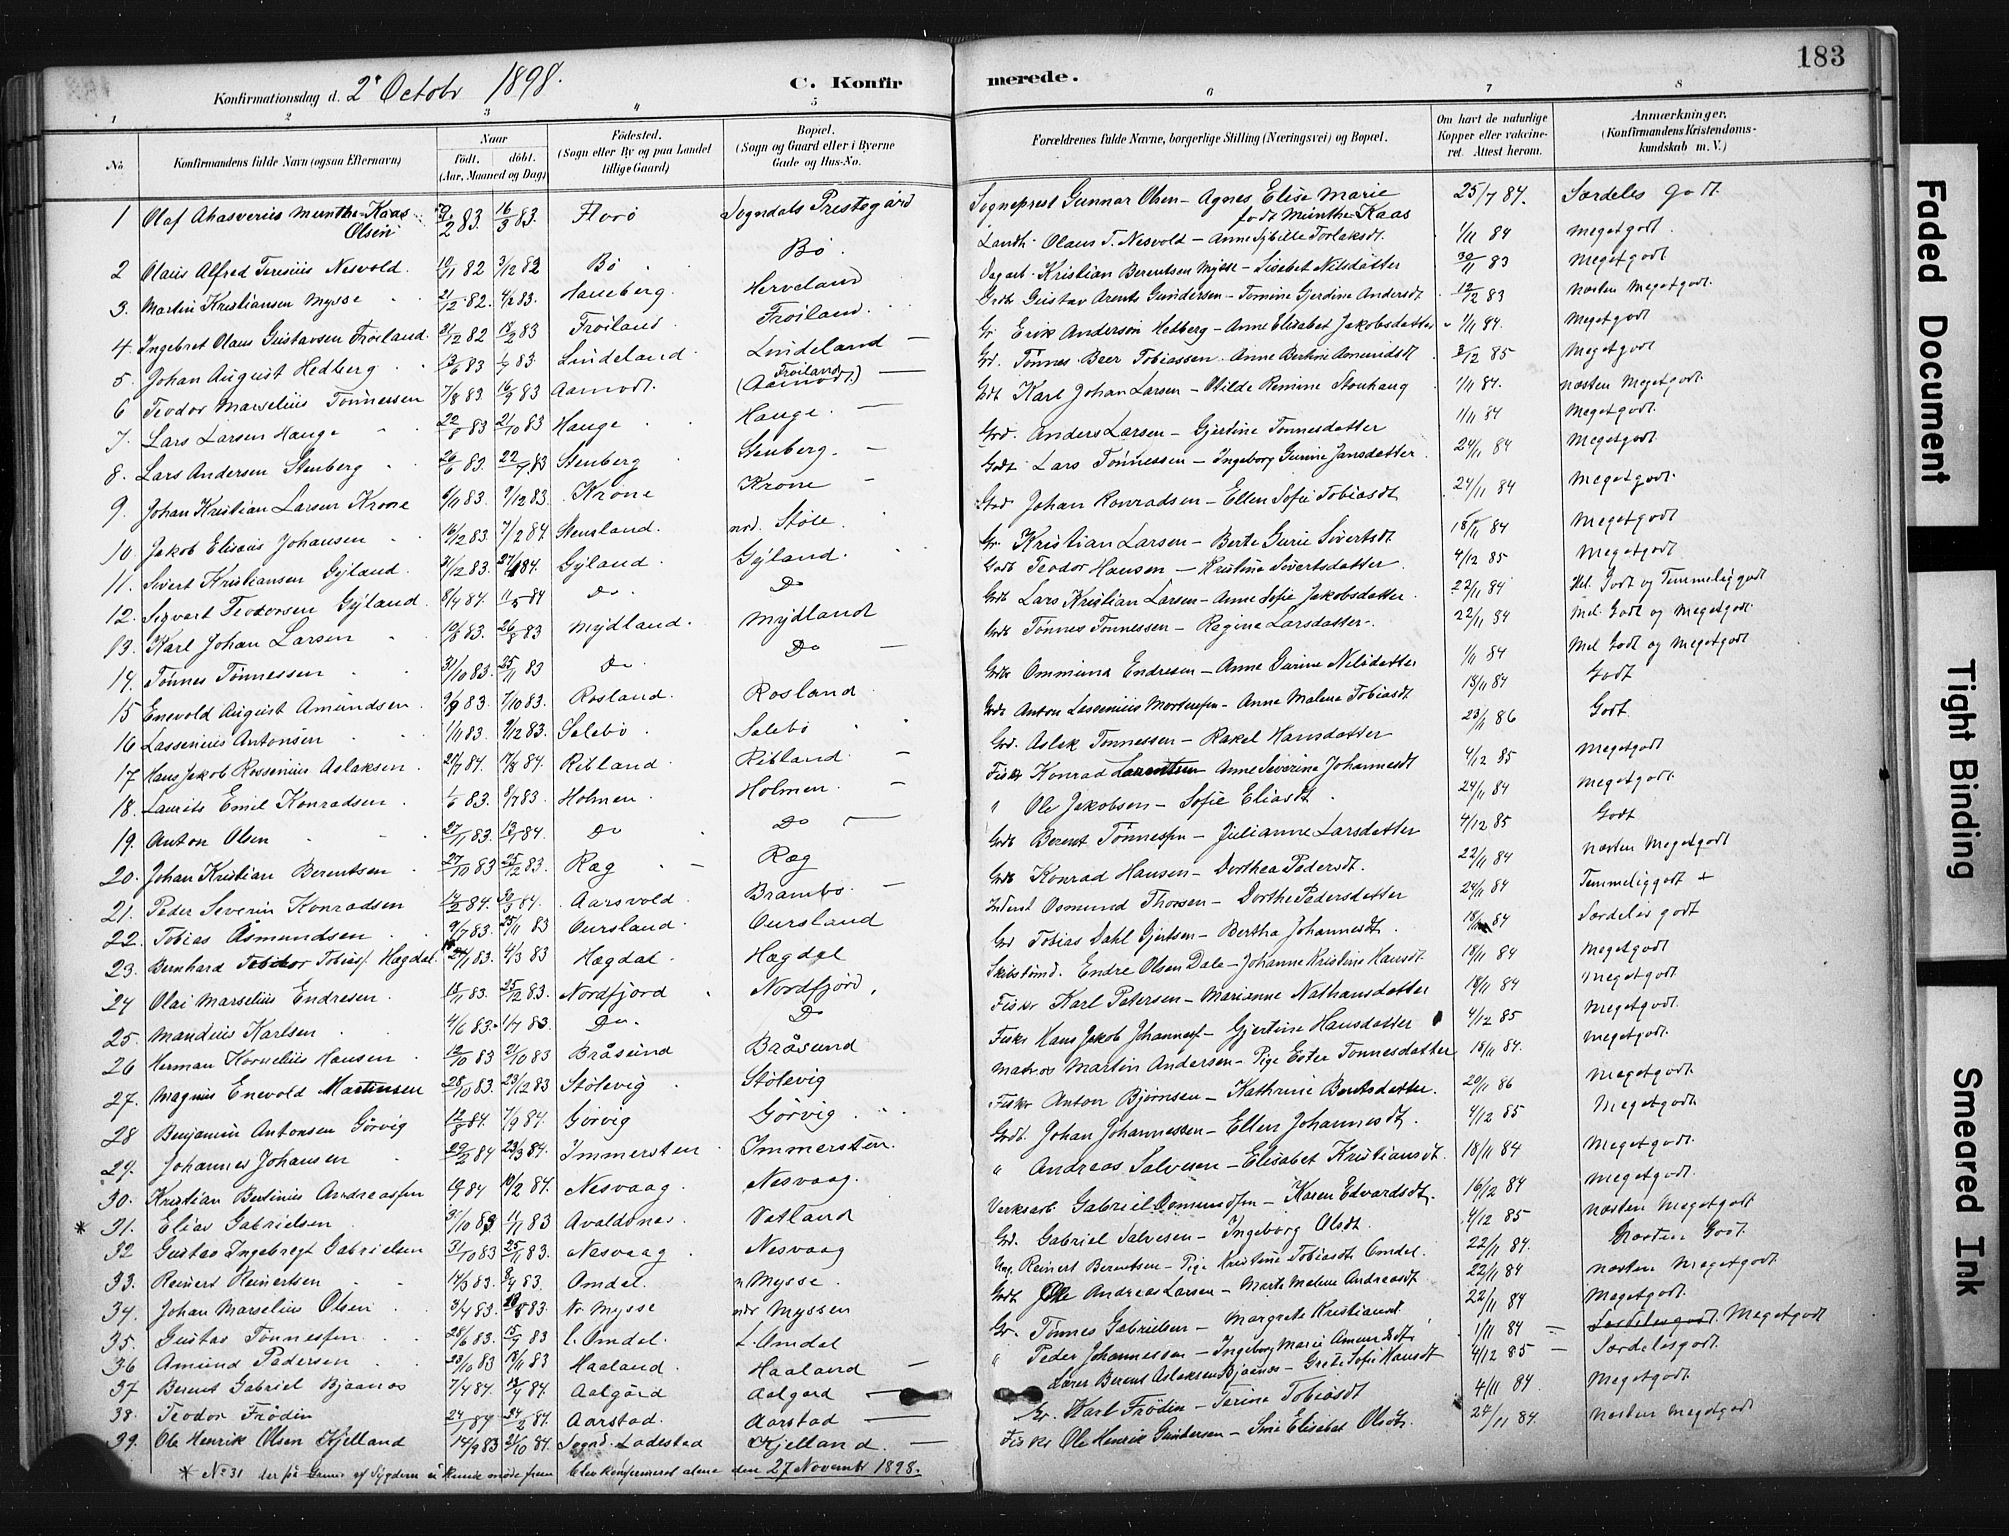 183
Konfirmationsdag d. 2' Octobr 1898. C. Konfirmerede.
1 2 3 4 5 6 7 8
No. Konfirmandens fulde Navn (ogsaa Efternavn) Naar født. døbt. (Aar, Maaned og Dag) Fødested. (Sogn eller By og paa Landet tillige Gaard) Bopæl. (Sogn og Gaard eller i Byerne Gade og Hus-No. Forældrenes fulde Navne, borgerlige Stilling (Næringsvei) og Bopæl. Om havt de naturlige Kopper eller vaccineret. Attest herom. Anmærkninger. (Konfirmandens Kristendomskundskab m. V.)
1 Olaf Ahasverius Munthe-Kaas Olsen 83. 16/3 83. Florø Sogndals Prestegård Sogneprest Gunnar Olsen - Agnes Elise Marie født Munthe-Kaas 25/7 84. Særdeles godt.
2 Olaus Alfred Teresius Nesvold. 10/11 82 3/12 82 Bø Bø. Landh. Olaus T. Nesvold - Anne Sybille Torlaksdt. 1/11 84 Megetgodt.
3. Martin Kristiansen Mysse 21/12 82. 4/2 83. Haneberg. Herveland Dagarb. Kristian Berentsen Mysse - Lisabet Nilsdatter 30/11 83 Megetgodt
4. Ingebret Olaus Gustavsen Frøiland. 21/12 82 18/2 83 Frøiland. Frøiland. Grdb Gustav Arents Gundersen - Tomine Gjerdine Andersdt. 12/12 83 næsten Megetgodt.
5. Johan August Hedberg 83 83. Lindeland. Lindeland — Gr. Erik Anderson Hedberg - Anne Elisabet Jakobsdatter 1/11 84. Megetgodt
6 Teodor Marselius Tønnessen 7/8 83. 16/9 83 Aamodt. Frøiland (Aamodt.) — Grd. Tønnes Brer Tobiassen - Anne Bertine Amundsdt. 3/12 85 Megetgodt
7. Lars Larsen Hauge 22/8 83 21/10 83 Hauge Hauge. — Grdb Karl Johan Larsen - Otilde Remine Stenhaug 1/11 84. næsten Megetgodt.
8. Lars Andersen Stenberg 26/6 83. 22/7 83 Stenberg Stenberg. — Grd. Anders Larsen - Gjertine Tønnesdatter 1/11 84 Megetgodt.
9. Johan Kristian Larsen Krone 6/11 83. 9/12 83. Krone Krone — Grdb Lars Tønnessen - Ingeborg Gurine Jansdatter 24/11 84 Megetgodt.
10. Jakob Elisæus Johansen 16/12 83. 7/2 84 Stensland. nrd. Støle. Grd Johan Konradsen - Ellen Sofie Tobiasdt. 24/11 84 Megetgodt.
11. Sivert Kristiansen Gyland. 31/12 83. 27/1 84. Gyland. Gyland. Gr. Kristian Larsen - Berte Gurie Sivertsdt 18/11 84 Megetgodt
12. Sigvart Teodorsen Gyland. 8/4 84. 11/5 84 Do. Do Grdb Teodor Hansen - Kristine Sivertsdatter. 4/12 85 Megetgodt.
13. Karl Johan Larsen 10/8 83. 26/8 83 Mydland. Mydland Grdb Lars Kristian Larsen - Anne Sofie Jakobsdatter. 22/11 84 Mel. Godt og Temmeliggodt
14. Tønnes Tønnessen 31/10 83. 25/11 83 Do. Do — Grdb Tønnes Tønnessen - Ragine Larsdatter. 22/11 84 Mel. Godt og Megetgodt.
15 Enevold August Amundsen. 9/9 83. 7/10 83. Rosland. Rosland Grdb Ommund Endresen - Anne Gurine Nilsdatter 1/11 84 Mel Godt og Megetgodt
16 Lassenius Antonsen 1/11 83. 9/12 83. Selebø Selebø Grdb Anton Lassenius Mortensen - Anne Malene Tobiasdt. 18/11 84 Godt
17 Hans Jakob Rossenius Aslaksen. 21/7 84. 17/8 84. Ribland Ribland. — Grd. Aslak Tønnessen - Rakel Hansdatter 23/11 86 Godt
18. Laurits Emil Konradsen 1/6 83. 8/7 83. Holmen. Holmen. — Fisker Konrad Larentsen Anne Severine Johannesdt 4/12 85 Megetgodt
19. Anton Olsen 27/11 83. 13/1 84. Do Do — " Ole Jakobsen - Sofie Eliasdt. 24/11 84 Megetgodt.
20. Johan Kristian Berentsen 27/10 83 25/12 83. Ræg. Ræg Grdb Berent Tønnessen - Julianne Larsdatter 4/12 85 Godt
21. Peder Severin Konradsen 84. 84. Aarsvold Brambo. — Grdb Konrad Hansen - Dorthea Pedersdt. 22/11 84 næsten Megetgodt
22. Tobias Åsmundsen 9/7 83. 25/11 83 Oursland. Oursland Inderst Osmund Thorsen - Dorthe Pedersdatter 24/11 84 Temmeliggodt +
23. Bernhard Teodor Tobiass. Hægdal. 24/1 83. 4/3 83 Hægdal. Hægdal Grd Tobias Dahl Gjertsen - Bertha Johannesdt. 18/11 84 Særdeles godt
24 Olai Marselius Endresen 18/11 83. 25/12 83. Nordfjord Nordfjord. Skibstømd. Endre Olsen Dale - Johanne Kristine Hansdt 18/11 84 Megetgodt
25. Mandius Karlsen 4/6 83. 1/7 83. Do. Do Fisker Karl Petersen - Marianne Nathansdatter 18/11 84 Megetgodt
26 Herman Kornelius Hansen 12/10 83 21/10 83 Bråsund Bråsund Fisker Hans Jakob Johanness. - Gjertine Hansdatter 4/12 85 Megetgodt.
27. Magnus Enevold Martinsen 28/10 83. 23/12 83 Stølevig Stølevig Matros Martin Andersen - Pige Ester Tønnesdatter 18/11 84. Megetgodt.
28 Benjamin Antonsen Gørvig 12/8 84. 7/9 84. Gørvig Gørvig Fisker Anton Bjørnsen - Kathrine Berntsdatter. 20/11 86 Megetgodt.
29. Johannes Johansen 29/2 84 23/3 84. Immersten Immersten. Grdb. Johan Johannessen - Ellen Johannesdt. 4/12 85 Megetgodt.
30. Kristian Berlinius Andreassen 84 10/2 84. Nesvaag. Nesvaag. " Andreas Salvesen - Elisabet Kristiansdt. 18/11 84 Megetgodt.
* 31. Elias Gabrielsen 31/10 83 11/11 83 Avaldsnes. Vatland Verksarb. Gabriel Osmundsen - Karen Edvardsdt. 16/12 84 Megetgodt.
32 Gustav Ingebregt Gabrielsen 31/10 83 25/11 83. Nesvaag Nesvaag Grd. Gabriel Salvesen - Ingeborg Olsdt. 4/12 85 næsten Megetgodt
33. Reinert Reinertsen 14/3 83. 83. Omdal. n Mysse Ung. Reinert Berentsen - Pige Kristine Tobiasdt. Omdal. 22/11 84. Næsten Godt.
34. Johan Marselius Olsen 3/4 83. 83. Nr. Mysse ndr Myssen Grdb Ole Andreas Larsen - Marte Malene Andreasdt 22/11 84 næsten Megetgodt
35. Gustav Tønnessen 28/6 83. 15/7 83 l. Omdal. L. Omdal Gr. Tønnes Gabrielsen - Margrete Kristiansdt. 22/11 84 Megetgodt.
36 Amund Pedersen 28/10 83 18/11 83 Haaland. Haaland — " Peder Johannessen - Ingeborg Marie Amundsdt. 1/11 84 = Særdelesgodt Megetgodt
37 Berent Gabriel Bjaanes 7/4 84. 13/4 84. Aalgård Aalgård — Lærer Berent Aslaksen Bjaanes - Grete Sofie Hansdt 4/12 85 — Særdelesgodt.
38. Teodor Frødin 84. 24/2 84. Aarstad. Aarstad — Gr. Karl Frödin - Serine Tobiasdt 4/11 84. Megetgodt
39. Ole Henrik Olsen Kjelland 14/9 83 21/10 84. Sognd. Ladestad Kjelland. — Fisker Ole Henrik Gundersen - Sine Elisabet Olsdt. 24/11 84. næsten Megetgodt
* No 31 der på Grund af Sygdom ei kunde møde frem blev konfirmeret alene den 27 November 1898.
Faded Document
Tight Binding
Smeared Ink